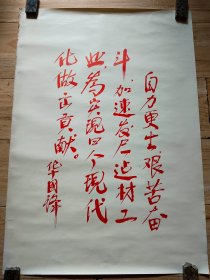 自力更生艰苦奋
斗加速发展造材工
业为实现四个现代
化做出贡献。
华国锋